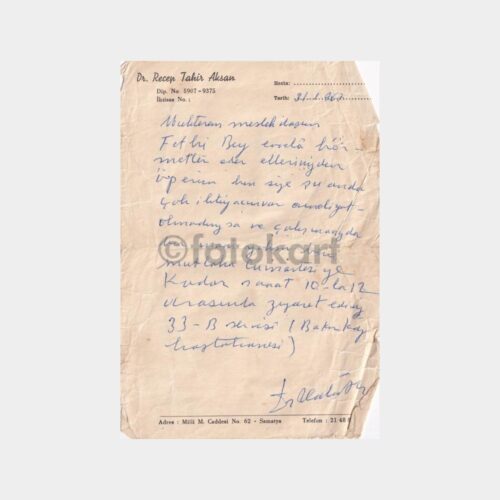 Dr. Recep Tahir Aksan
Dip. No 5907-9375
İhtisas No. :
Hasta:
Tarih: 31.1.967
Muhterem meslekdaşım
Fethi Bey evvelâ hür-
metler eder ellerinizden
öperim ben size şu anda
çok ihtiyacım var
ve
©fotokart
Cumartesiye
Kadar saat 10-la 12
arasında ziyaret ediniz
33-B servisi (Bakırköy
hastahanesi)
Adres : Milli M. Caddesi No. 62 - Samatya
Telefon : 21 48